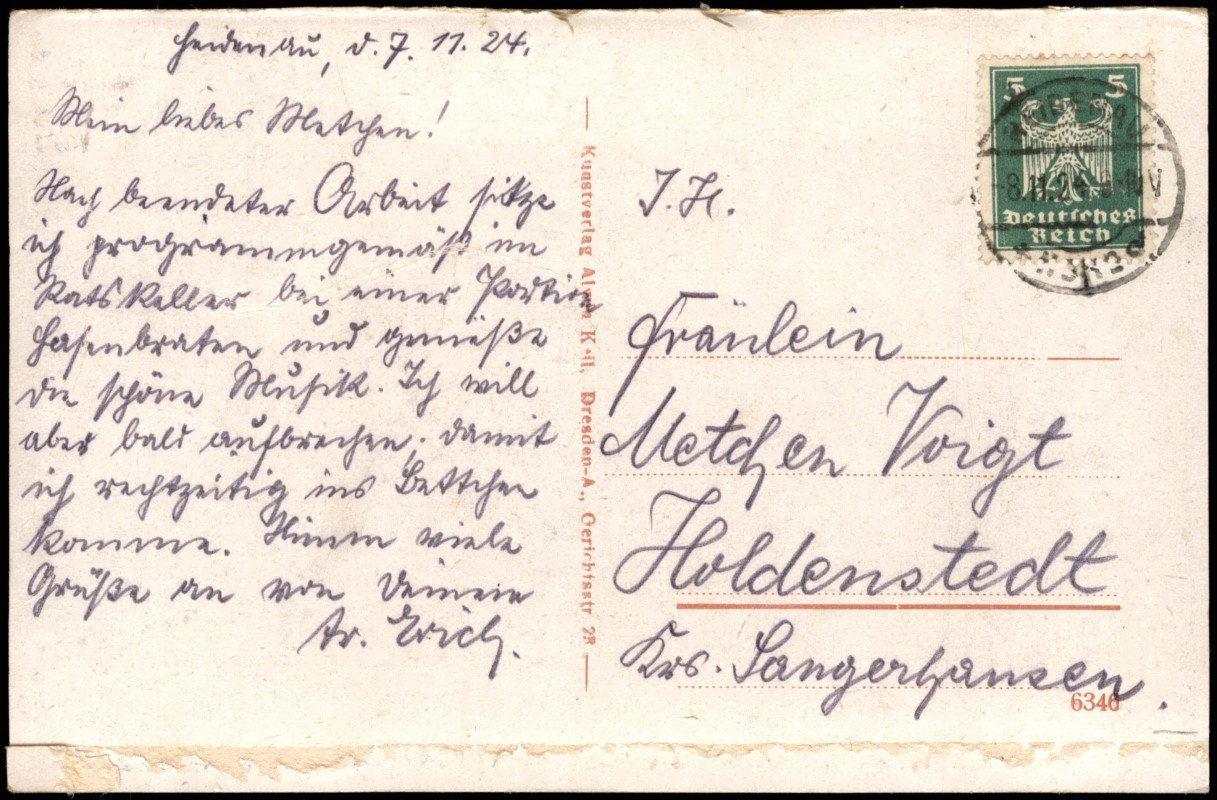 Heidenau, d. 7. 11. 24.
Mein liebes Metchen!
Nach beendeter Arbeit sitze
ich programmgemäß im
Ratskeller bei einer Portion
Hasenbraten und genieße
die schöne Musik. Ich will
aber bald aufbrechen, damit
ich rechtzeitig ins Bettchen
komme. Nimm viele
Grüße an von Deinem
tr. Erich.
Kunstverlag Alwin Keil, Dresden-A., Gerichtsstr 28
5 5
Deutsches
Reich
HEIDENAU
-8.11.24
J. H.
Fräulein
Metchen Voigt
Holdenstedt
Krs. Sangerhausen.
6346